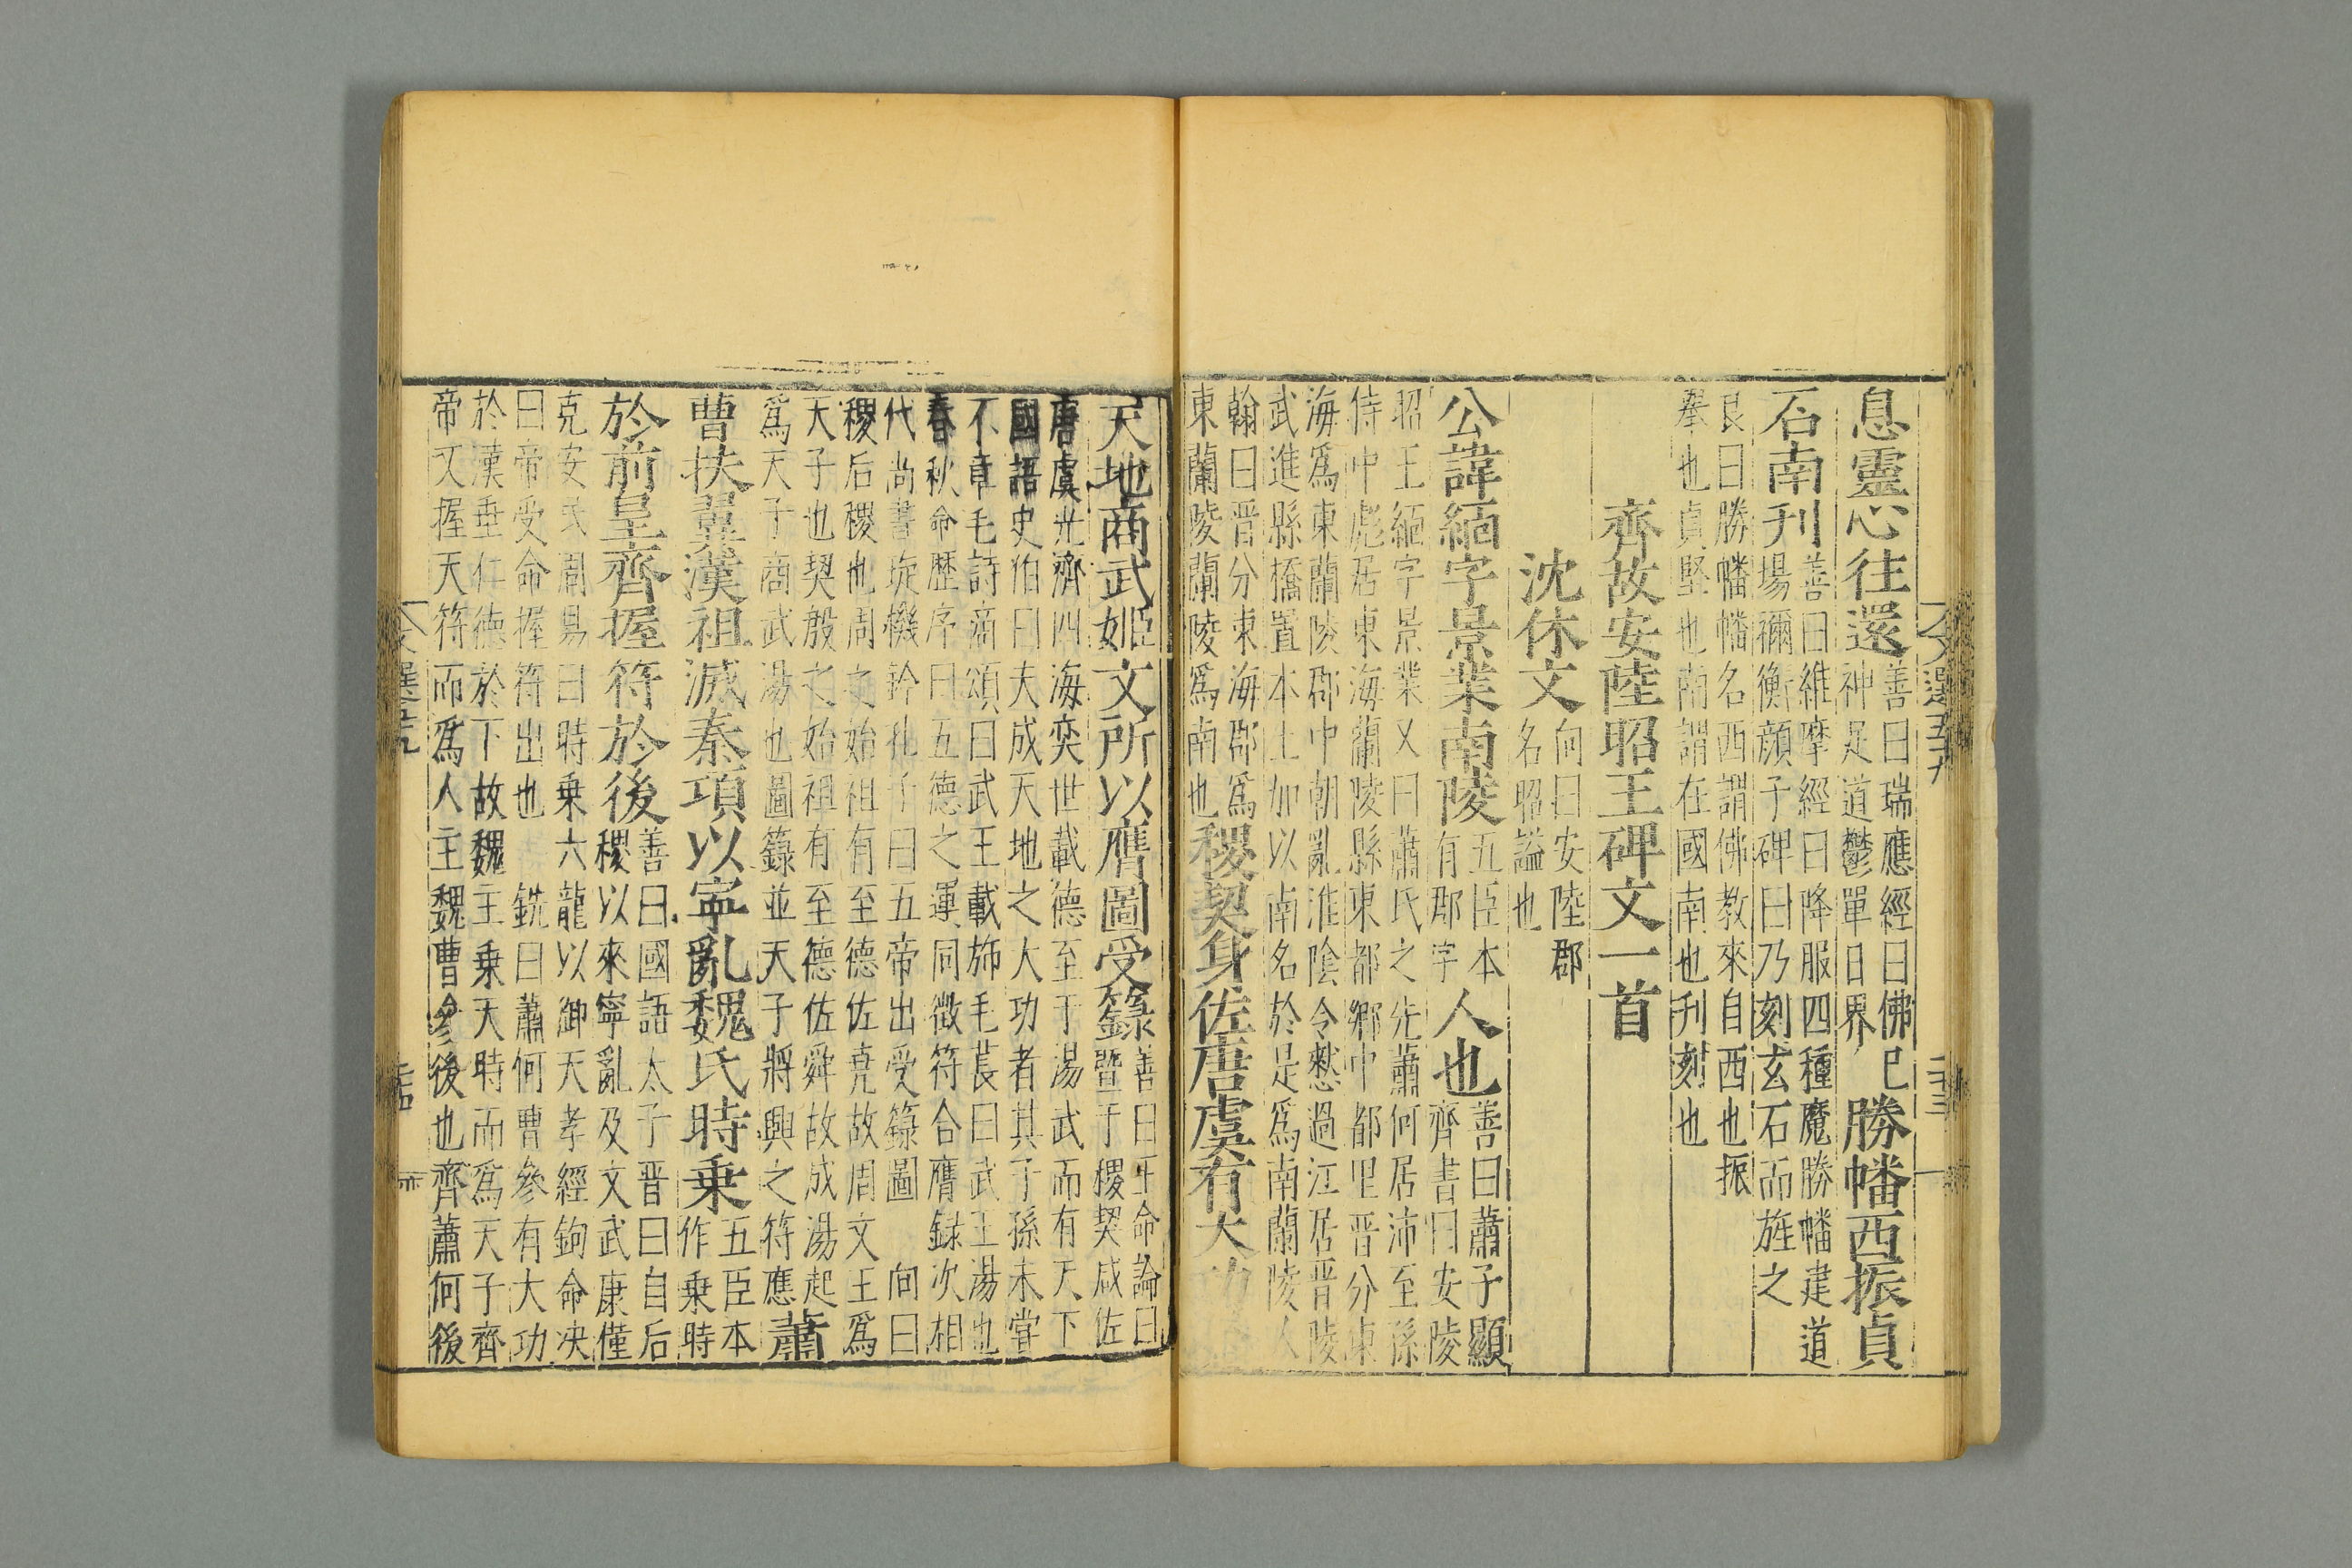 息靈心往還善曰瑞應經曰佛已神足道鬱單日界勝幡西振貞
石南刊善曰維摩經曰降服四種魔勝幡建道場禰衡顔子碑曰乃刻玄石而旌之
良曰勝幡幡名西謂佛教來自西也振舉也貞堅也南謂在國南也刊刻也
齊故安陸昭王碑文一首
沈休文向曰安陸郡名昭謚也
公諱緬字景業南陵五臣本有郡字人也善曰蕭子顯齊書曰安陵
昭王緬字景業又曰蕭氏之先蕭何居沛至孫侍中彪居東海蘭陵縣東都鄉中都里晉分東
海爲東蘭陵郡中朝亂淮陰令慭過江居晉陵武進縣橋置本土加以南名於是爲南蘭陵人
翰曰晉分東海郡爲東蘭陵蘭陵爲南也稷契身佐唐虞有大功
天地商武姬文所以膺圖受籙善曰王命論曰暨于稷契咸佐
唐虞光濟四海奕世載德至于湯武而有天下國語史伯曰夫成天地之大功者其子孫未嘗
不章毛詩商頌曰武王載斾毛萇曰武王湯也春秋命歷序曰五德之運同徵符合膺録次相
代尚書琁機鈐孔子曰五帝出受籙圖 向曰稷后稷也周之始祖有至德佐堯故周文王爲
天子也契殷之始祖有至德佐舜故成湯起爲天子商武湯也圖籙並天子將興之符應蕭
曹扶翼漢祖滅秦項以寧亂魏氏時乗五臣本作乗時
於前皇齊握符於後善曰國語太子晉曰自后稷以來寧亂及文武康僅
克安民周易曰時乗六龍以御天孝經鉤命决曰帝受命握符出也 銑曰蕭何曹參有大功
於漢垂仁德於下故魏主乗天時而爲天子齊帝又握天符而爲人主魏曹參後也齊蕭何後